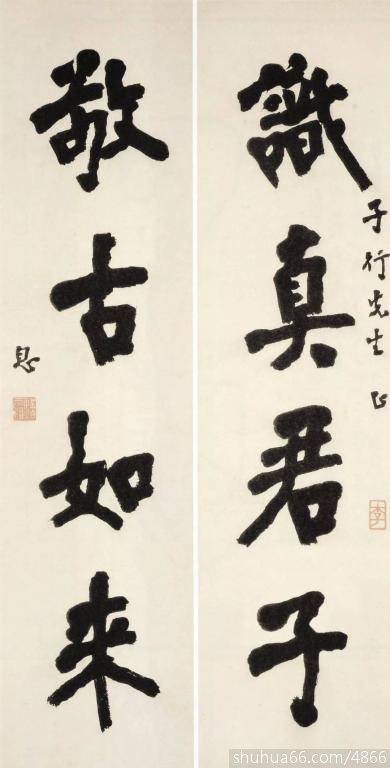 識真君子
子行先生正
李
敬古如來
息
shuhua66.com/4866